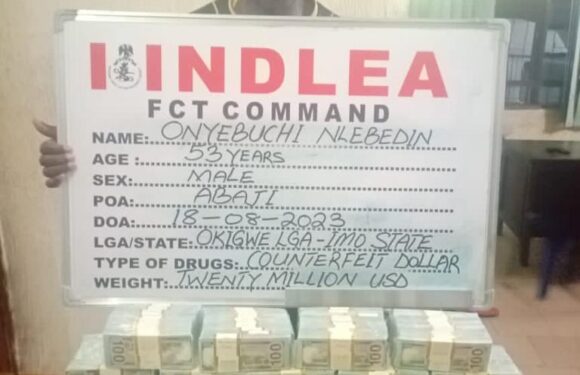 NDLEA
FCT COMMAND
NAME: ONYEBUCHI NLEBEDIN
AGE : 53 YEARS
SEX: MALE
POA: ABAJI
DOA: 18-08-2023
LGA/STATE: OKIGWE LGA-IMO STATE
TYPE OF DRUGS: COUNTERFEIT DOLLAR
WEIGHT: TWENTY MILLION USD
100
100
100
100